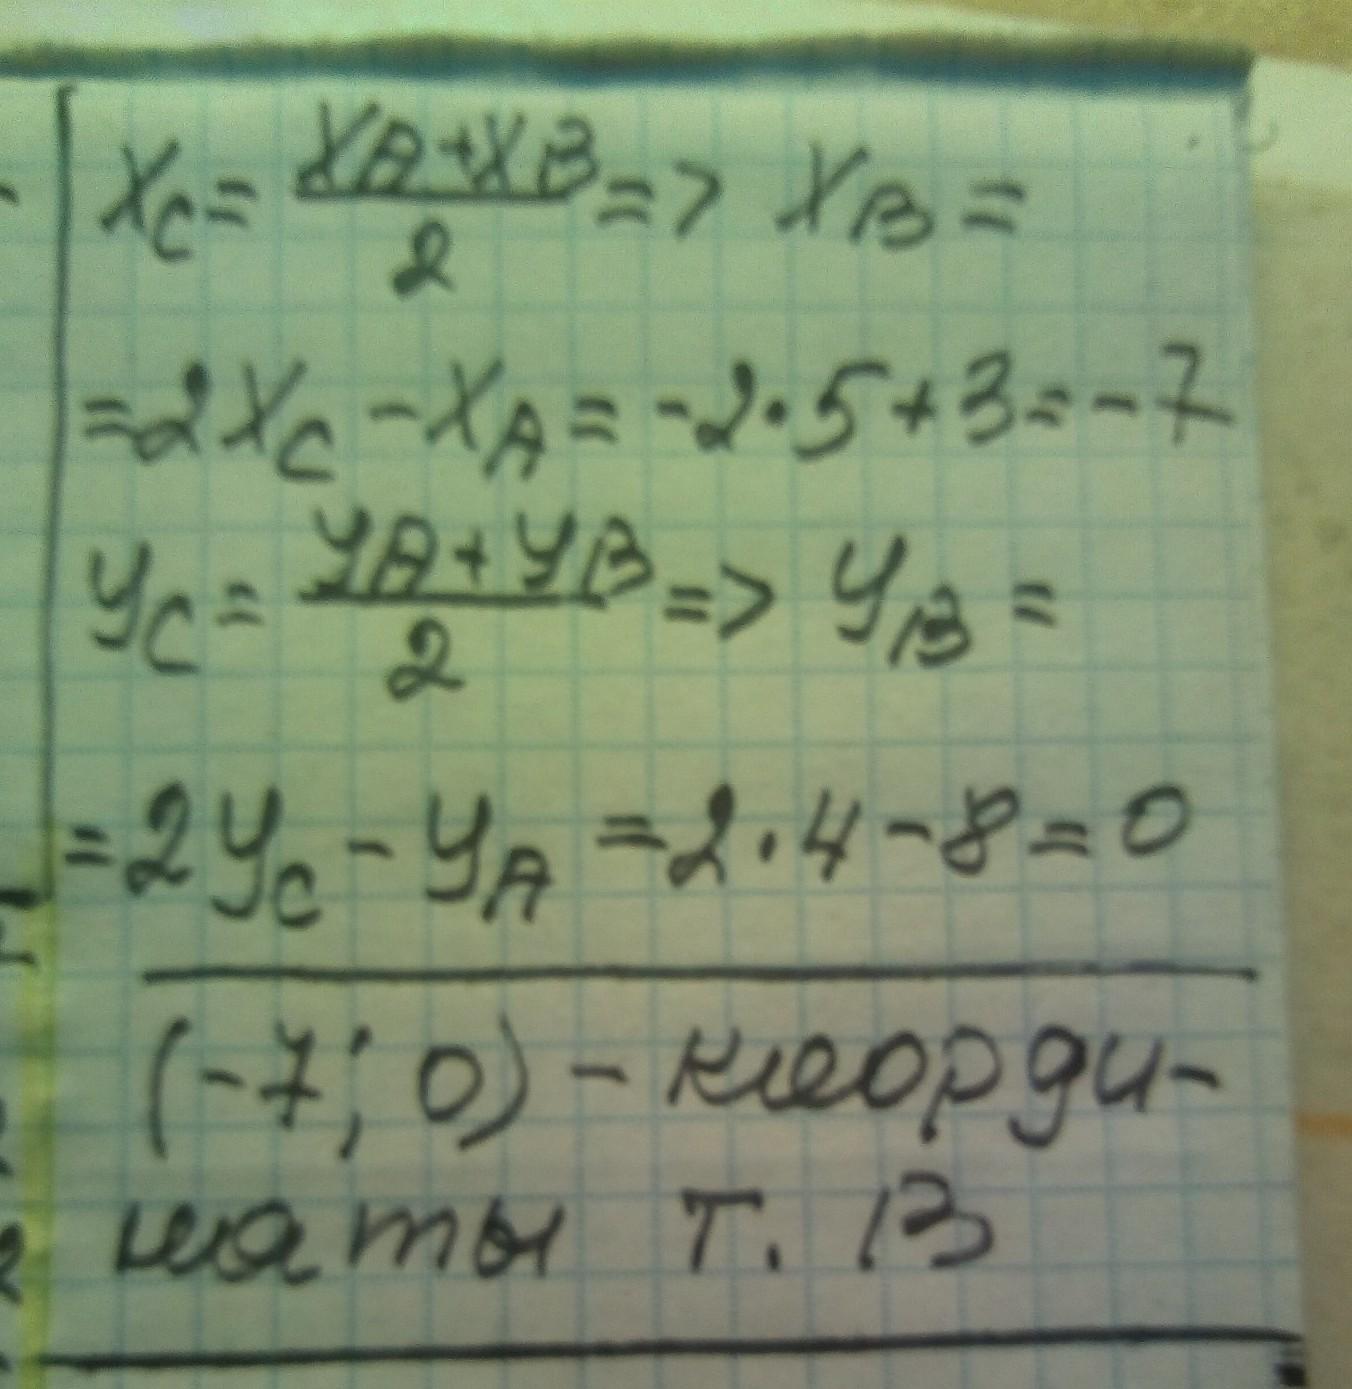 Xc = (XA + XB)/2 => XB =
= 2Xc - XA = -2·5 + 3 = -7
yc = (yA + yB)/2 => yB =
= 2yc - yA = 2·4 - 8 = 0
(-7; 0) - коорди-
наты т. B